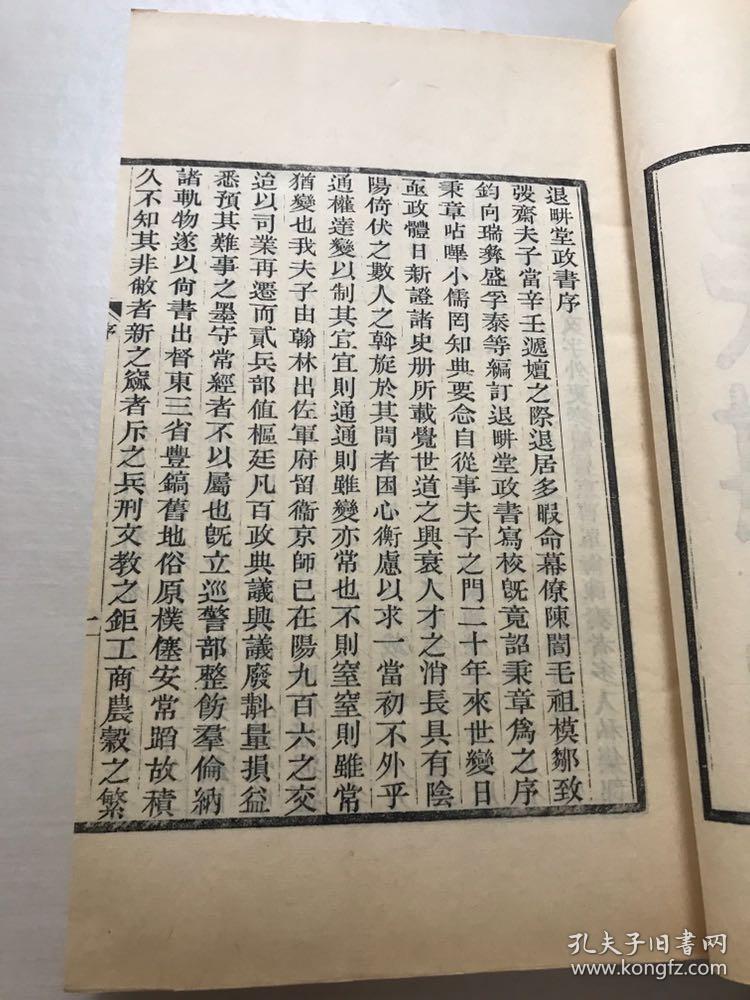 退畊堂政書序
弢齋夫子當辛壬遞壇之際退居多暇命幕僚陳誾毛祖模鄒致
鈞向瑞彝盛孚泰等編訂退畊堂政書寫校旣竟詔秉章爲之序
秉章呫嗶小儒罔知典要念自從事夫子之門二十年來世變日
亟政體日新證諸史册所載覺世道之興衰人才之消長具有陰
陽倚伏之數人之斡旋於其間者困心衡慮以求一當初不外乎
通權達變以制其宜宜則通通則雖變亦常也不則窒窒則雖常
猶變也我夫子由翰林出佐軍府留衞京師已在陽九百六之交
迨以司業再遷而貳兵部値樞廷凡百政典議興議廢斠量損益
悉預其難事之墨守常經者不以屬也旣立巡警部整飭羣倫納
諸軌物遂以尙書出督東三省豐鎬舊地俗原樸僿安常蹈故積
久不知其非敝者新之窳者斥之兵刑文教之鉅工商農穀之繁
序
二
孔夫子旧书网
www.kongfz.com